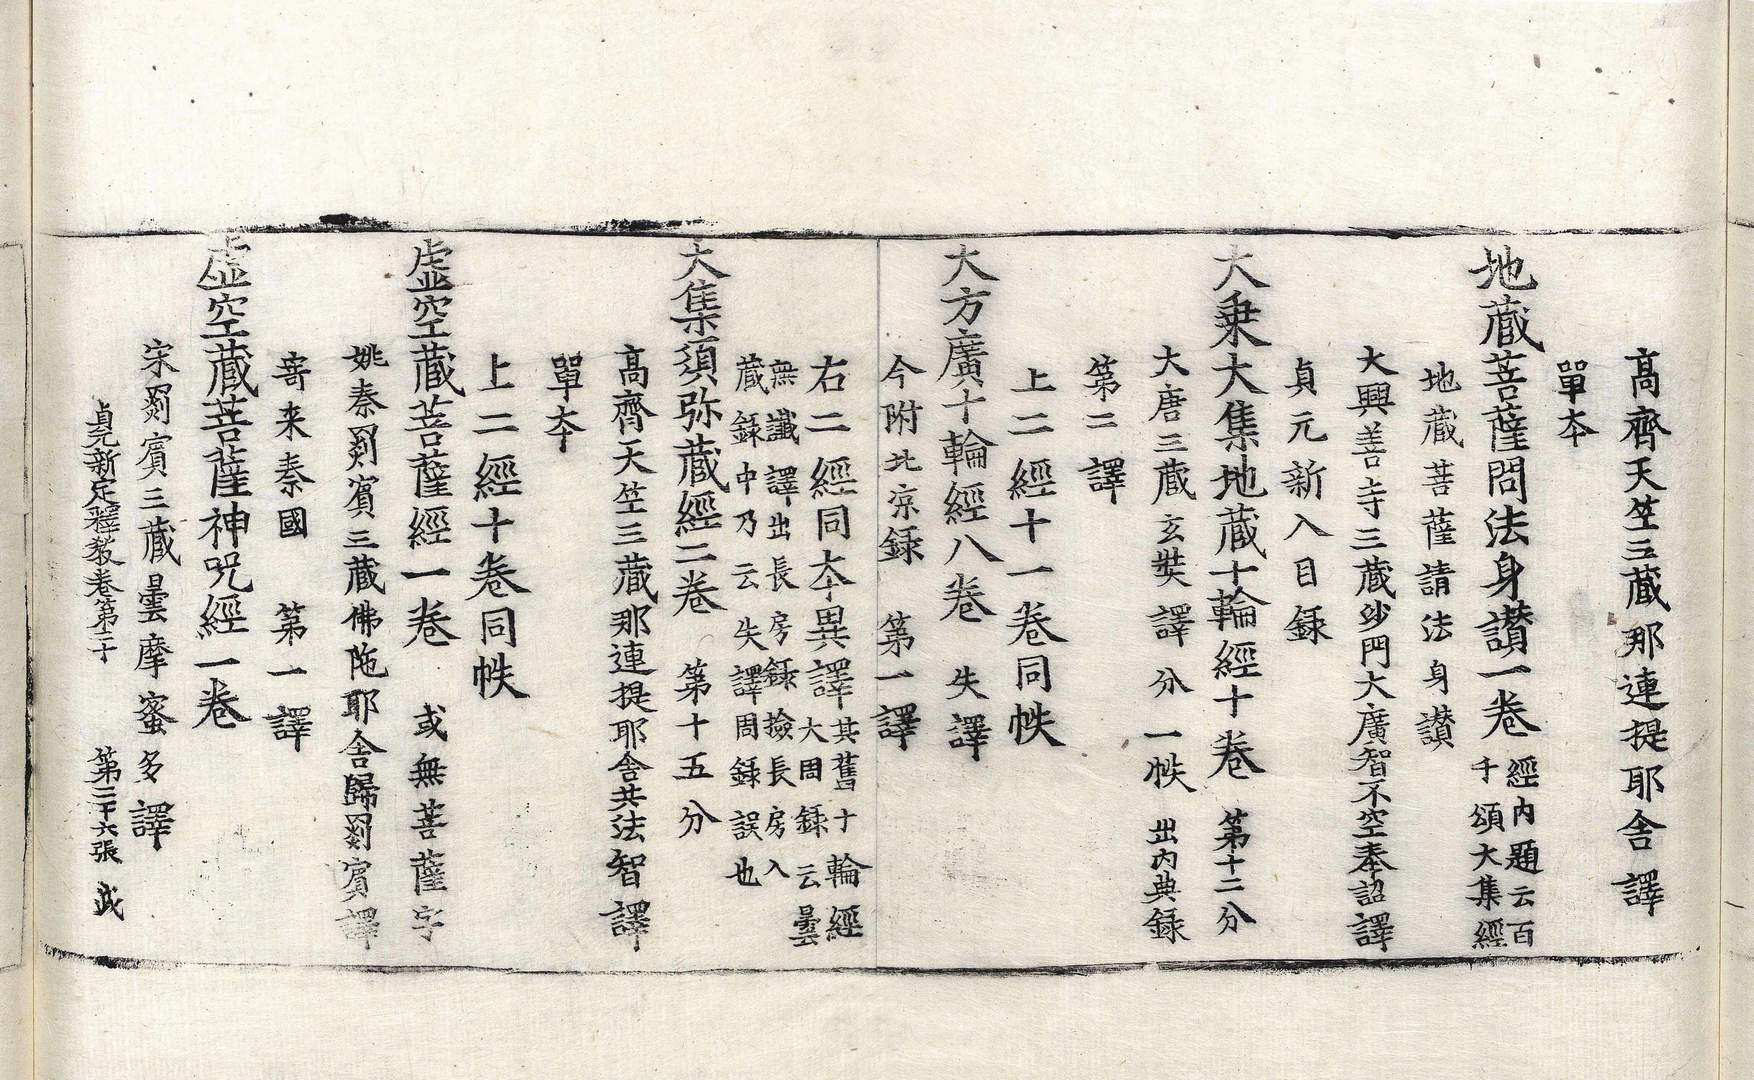 髙齊天竺三藏那連提耶舎譯
單夲
地藏菩薩問法身讃一卷 經内題云百
千頌大集經
地藏菩薩請法身讃
大興善寺三藏沙門大廣智不空奉詔譯
貞元新入目録
大乗大集地藏十輪經十卷 第十二分
大唐三藏玄奘譯 分一帙 出内典録
第二譯
上二經十一卷同帙
大方廣十輪經八卷 失譯
今附北涼録 第一譯
右二經同夲異譯 其舊十輪經
大周録云曇
無讖譯出長房録撿長房入
藏録中乃云失譯周録誤也
大集須弥藏經二卷 第十五分
髙齊天竺三藏那連提耶舎共法智譯
單夲
上二經十卷同帙
虚空藏菩薩經一卷 或無菩薩字
姚秦罽賓三藏佛陁耶舎歸罽賓譯
寄来秦國 第一譯
虚空藏菩薩神呪經一卷
宋罽賓三藏曇摩蜜多譯
貞元新定釋教卷第二十 第二十六張